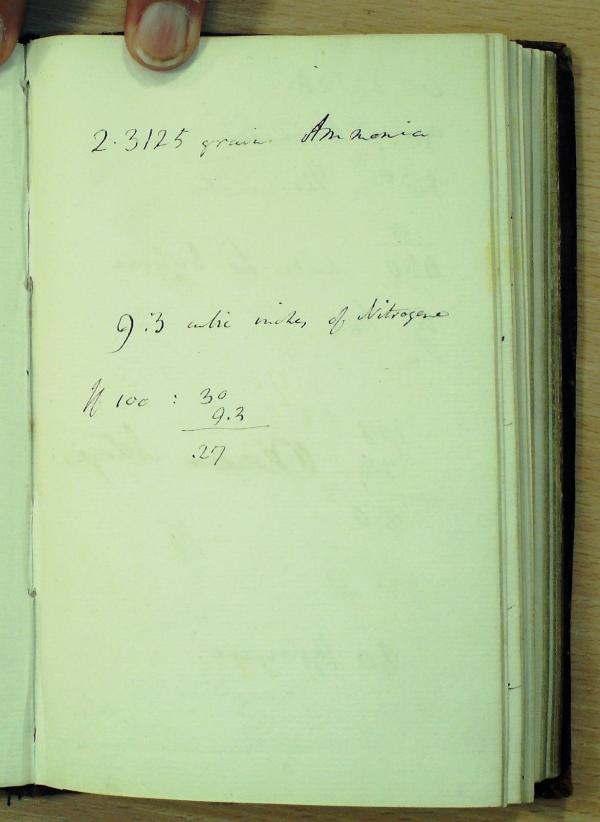 2.3125 grains Ammonia
9.3 cubic inches of Nitrogene
If 100 : 30
9.3
.27